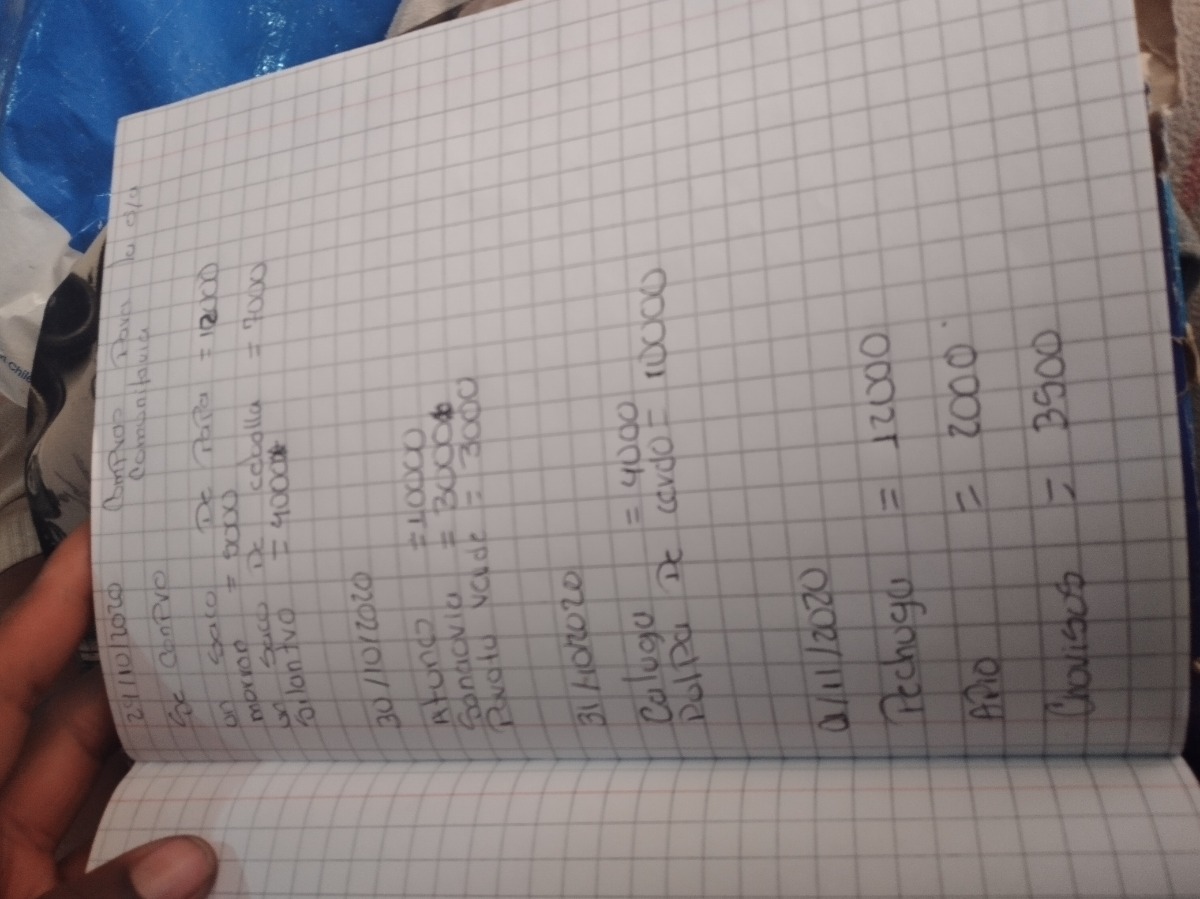 29/10/2020 Compras Para la olla
Comunitaria
Se Compro
un Saco De PaPa = 12000
morron = 5000
un Saco De cebolla = 7000
Silantro = 4000
30/10/2020
Atunes = 10000
Sanaoria = 3000
Poroto verde = 3000
31/10/2020
Caluga = 4000
PulPa De cerdo = 10000
01/11/2020
Pechuga = 12000
APio = 2000.
Chorisos = 3500